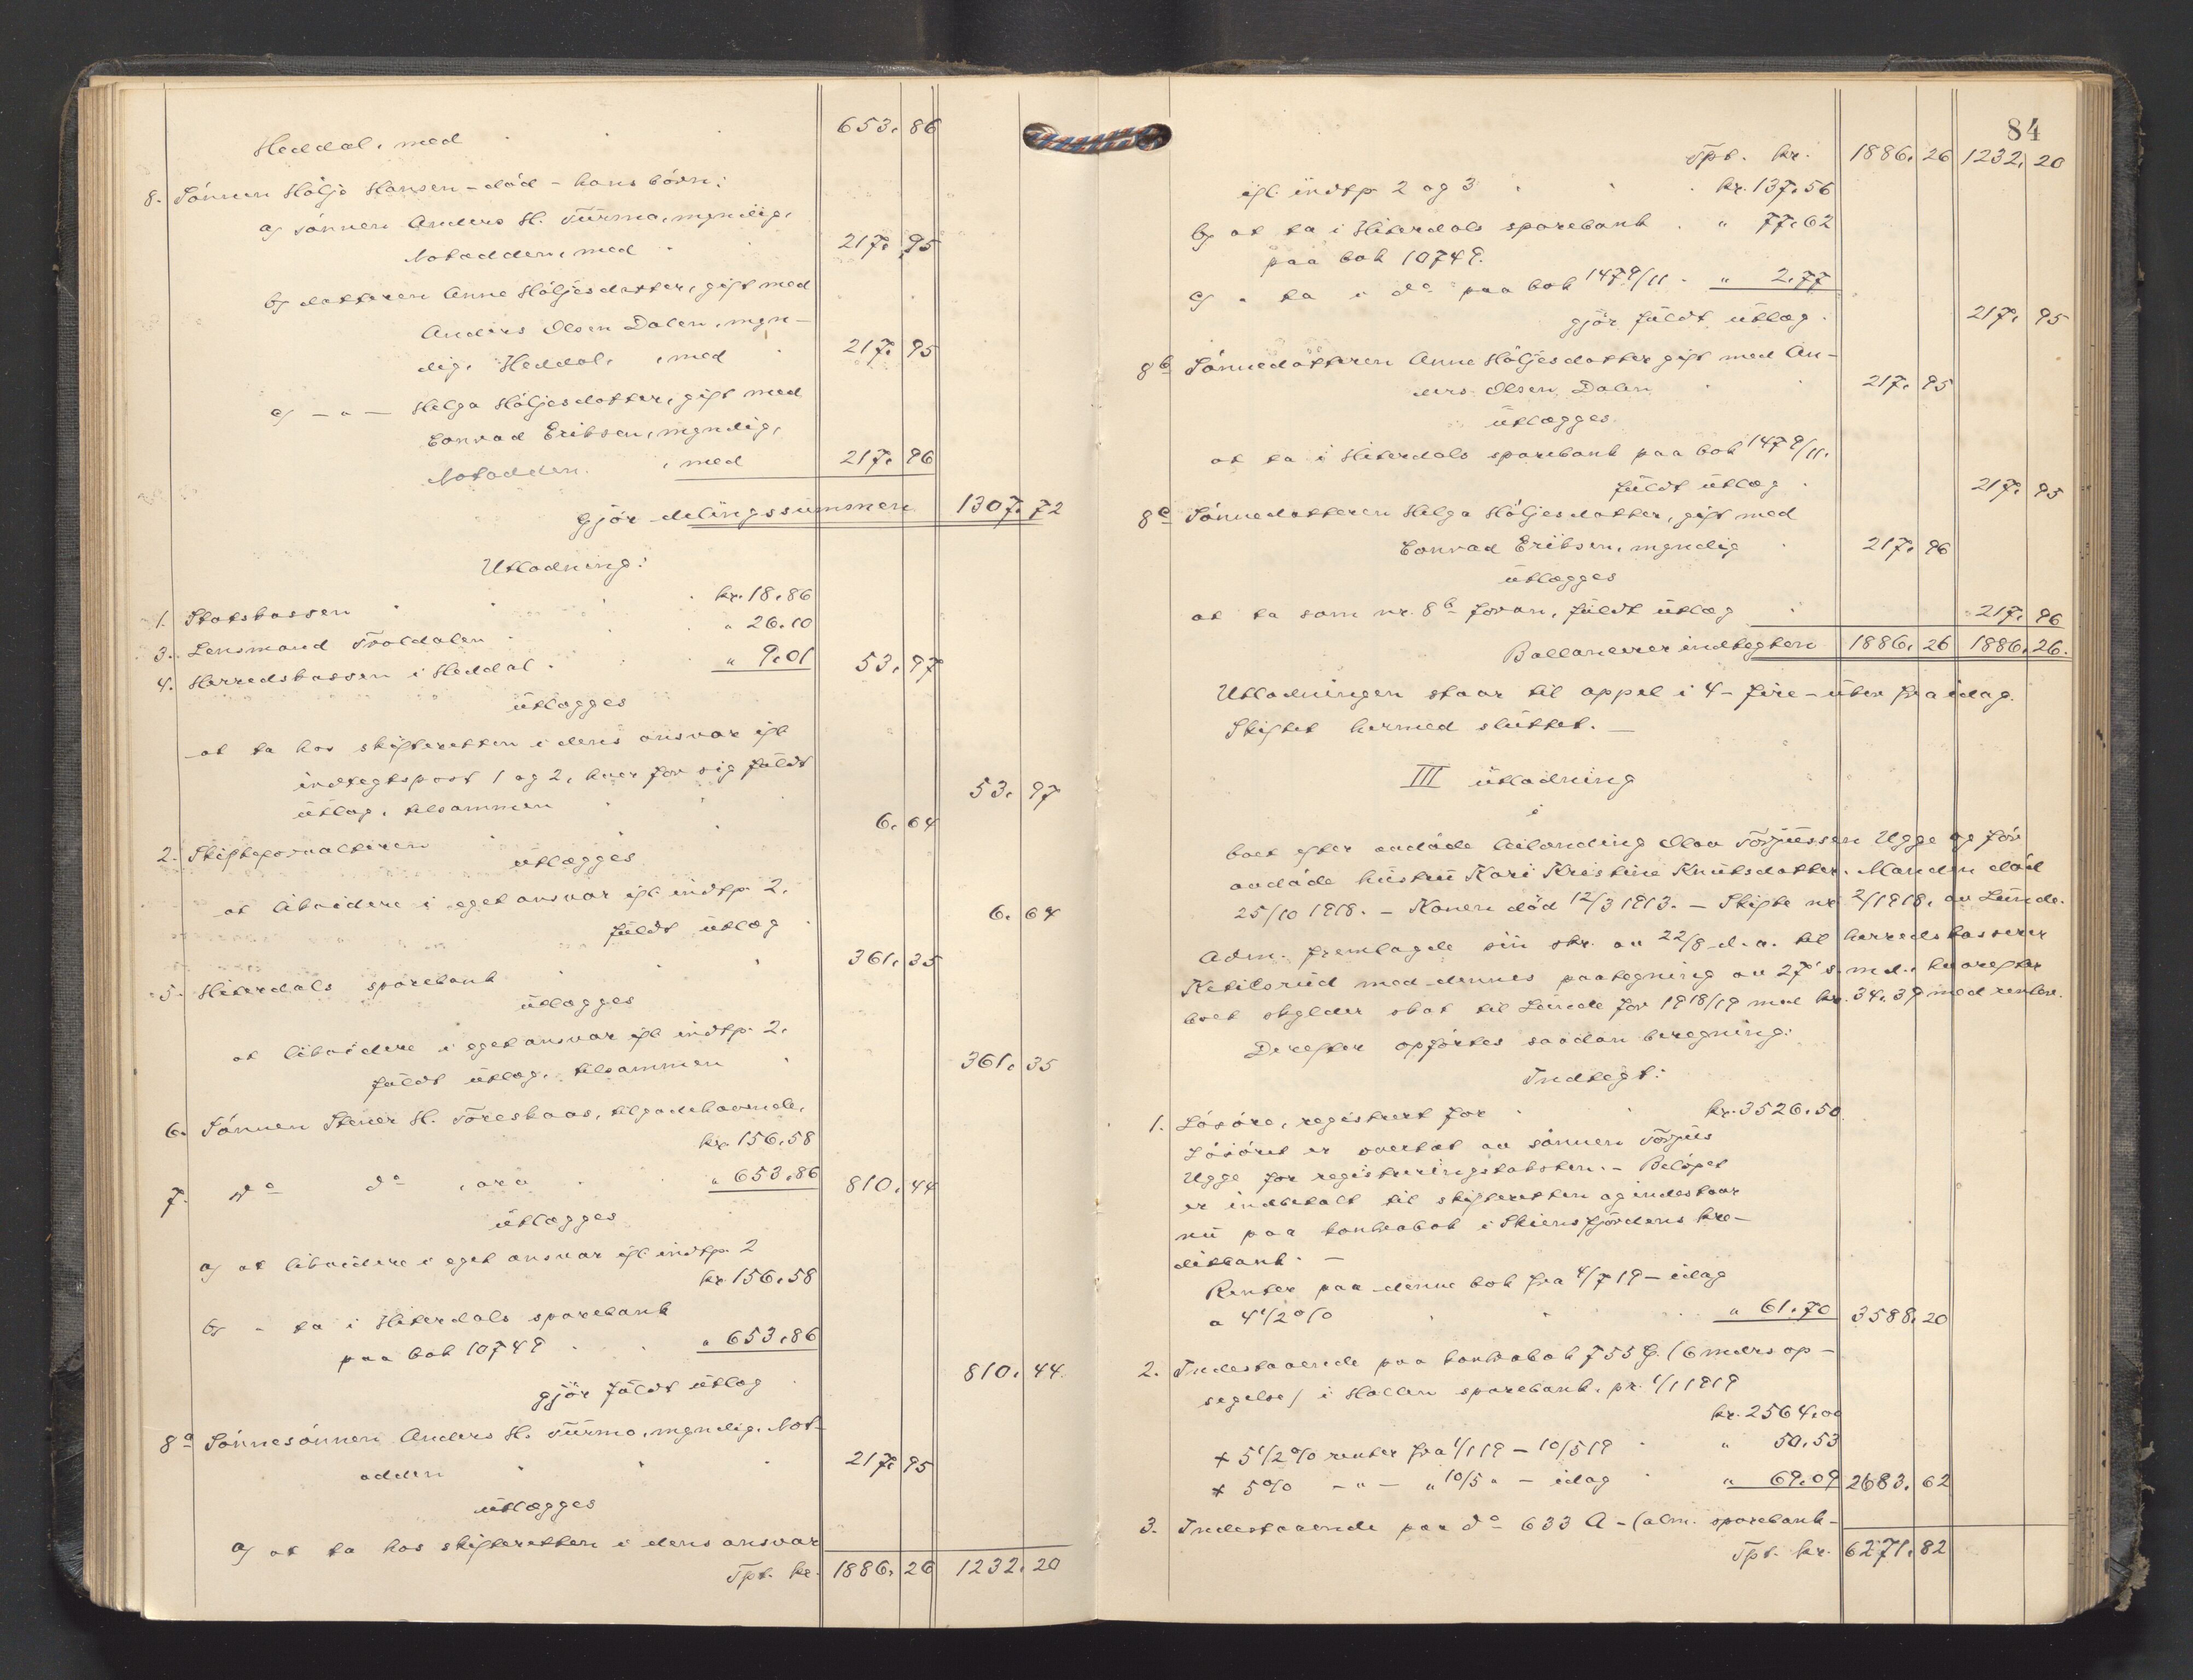 Heddal, med 653. 86
8. Sönnen Hölje Hansen - död - hans börn:
a) sönnen Anders H. Turmo, myndig,
Notodden, med 217. 95
b) datteren Anne Höljesdatter, gift med
Anders Olsen Dalen, myn-
dig, Heddal, med 217. 95
c) - " - Helga Höljesdatter, gift med
Conrad Eriksen, myndig,
Notodden, med 217. 96
gjör delingssummen 1307. 72
Utlodning:
1. Statskassen kr. 18.86
3. Lensmand Troldalen " 26.10
4. Herredskassen i Heddal " 9.01 53. 97
utlægges
at ta hos skifteretten i dens ansvar ifl
indtegtspost 1 og 2, hver for sig fuldt
utlag, tilsammen 53. 97
2. Skifteforvalteren 6. 64
utlægges
at likvidere i eget ansvar ifl indtp. 2.
fuldt utlæg 6. 64
5. Hiterdals sparebank 361. 35
utlægges
at likvidere i eget ansvar ifl indtp. 2.
fuldt utlæg, tilsammen 361. 35
6. Sönnen Stener H. Töreskaas, tilgodehavende,
kr. 156.58
7. do do , arv " 653.86 810. 44
utlægges
a) at likvidere i eget ansvar ifl indtp. 2
kr. 156.58
b) - ta i Hiterdals sparebank
paa bok 10749 " 653.86
gjör fuldt utlæg 810. 44
8a Sönnesönnen Anders H. Turmo, myndig, Not-
odden 217. 95
utlægges
a) at ta hos skifteretten i dens ansvar
Tpt. kr. 1886. 26 1232. 20
84
Tpt. kr. 1886. 26 1232. 20
ifl. indtp. 2 og 3 kr. 137.56
b) at ta i Hiterdals sparebank " 77.62
paa bok 10749.
c) " ta i do paa bok 1479/11 " 2.77
gjör fuldt utlæg 217. 95
8b Sönnedatteren Anne Höljesdatter gift med An-
ders Olsen Dalen 217. 95
utlægges
at ta i Hiterdals sparebank paa bok 1479/11.
fuldt utlæg 217. 95
8c Sönnedatteren Helga Höljesdatter, gift med
Conrad Eriksen, myndig 217. 96
utlægges
at ta som nr. 8b foran, fuldt utlæg 217. 96
Ballancerer indtegten 1886. 26 1886. 26.
Utlodningen staar til appel i 4 - fire - uker fra idag.
Skiftet hermed sluttet. -
III utlodning
i
boet efter avdöde leilending Olav Torjussen Ugge og för
avdöde hustru Kari Kristine Knutsdatter. Manden död
25/10 1918. - Konen död 12/3 1913. - Skifte nr. 2/1918, av Lunde.
Adm. fremlagde sin skr. av 22/8 d.a. til herredskasserer
Ketilsrud med dennes paategning av 27' s.md., hvorefter
boet skylder skat til Lunde for 1918/19 med kr. 34.39 med renter.
Derefter opförtes saadan beregning:
Indtegt:
1. Lösöre, registrert for kr. 3526.50
Lösöret er overtat av sönnen Torjus
Ugge for registreringstaksten. - Belöpet
er indbetalt til skifteretten og indestaar
nu paa kontrabok i Skiensfjordens kre-
ditbank. -
Renter paa denne bok fra 4/7 19 - idag
a 4 1/2 % " 61.70 3588. 20
2. Indestaaende paa kontrabok 755 F. (6 mdrs op-
segelse) i Hollen sparebank, pr. 1/1 1919
kr. 2564.00
+ 5 1/2 % renter fra 1/1 19 - 10/5 19 " 50.53
+ 5 % - " - " 10/5 " - idag " 69.09 2683. 62
3. Indestaaende paa do 633 A - (alm. sparebank-
Tpt. kr. 6271. 82